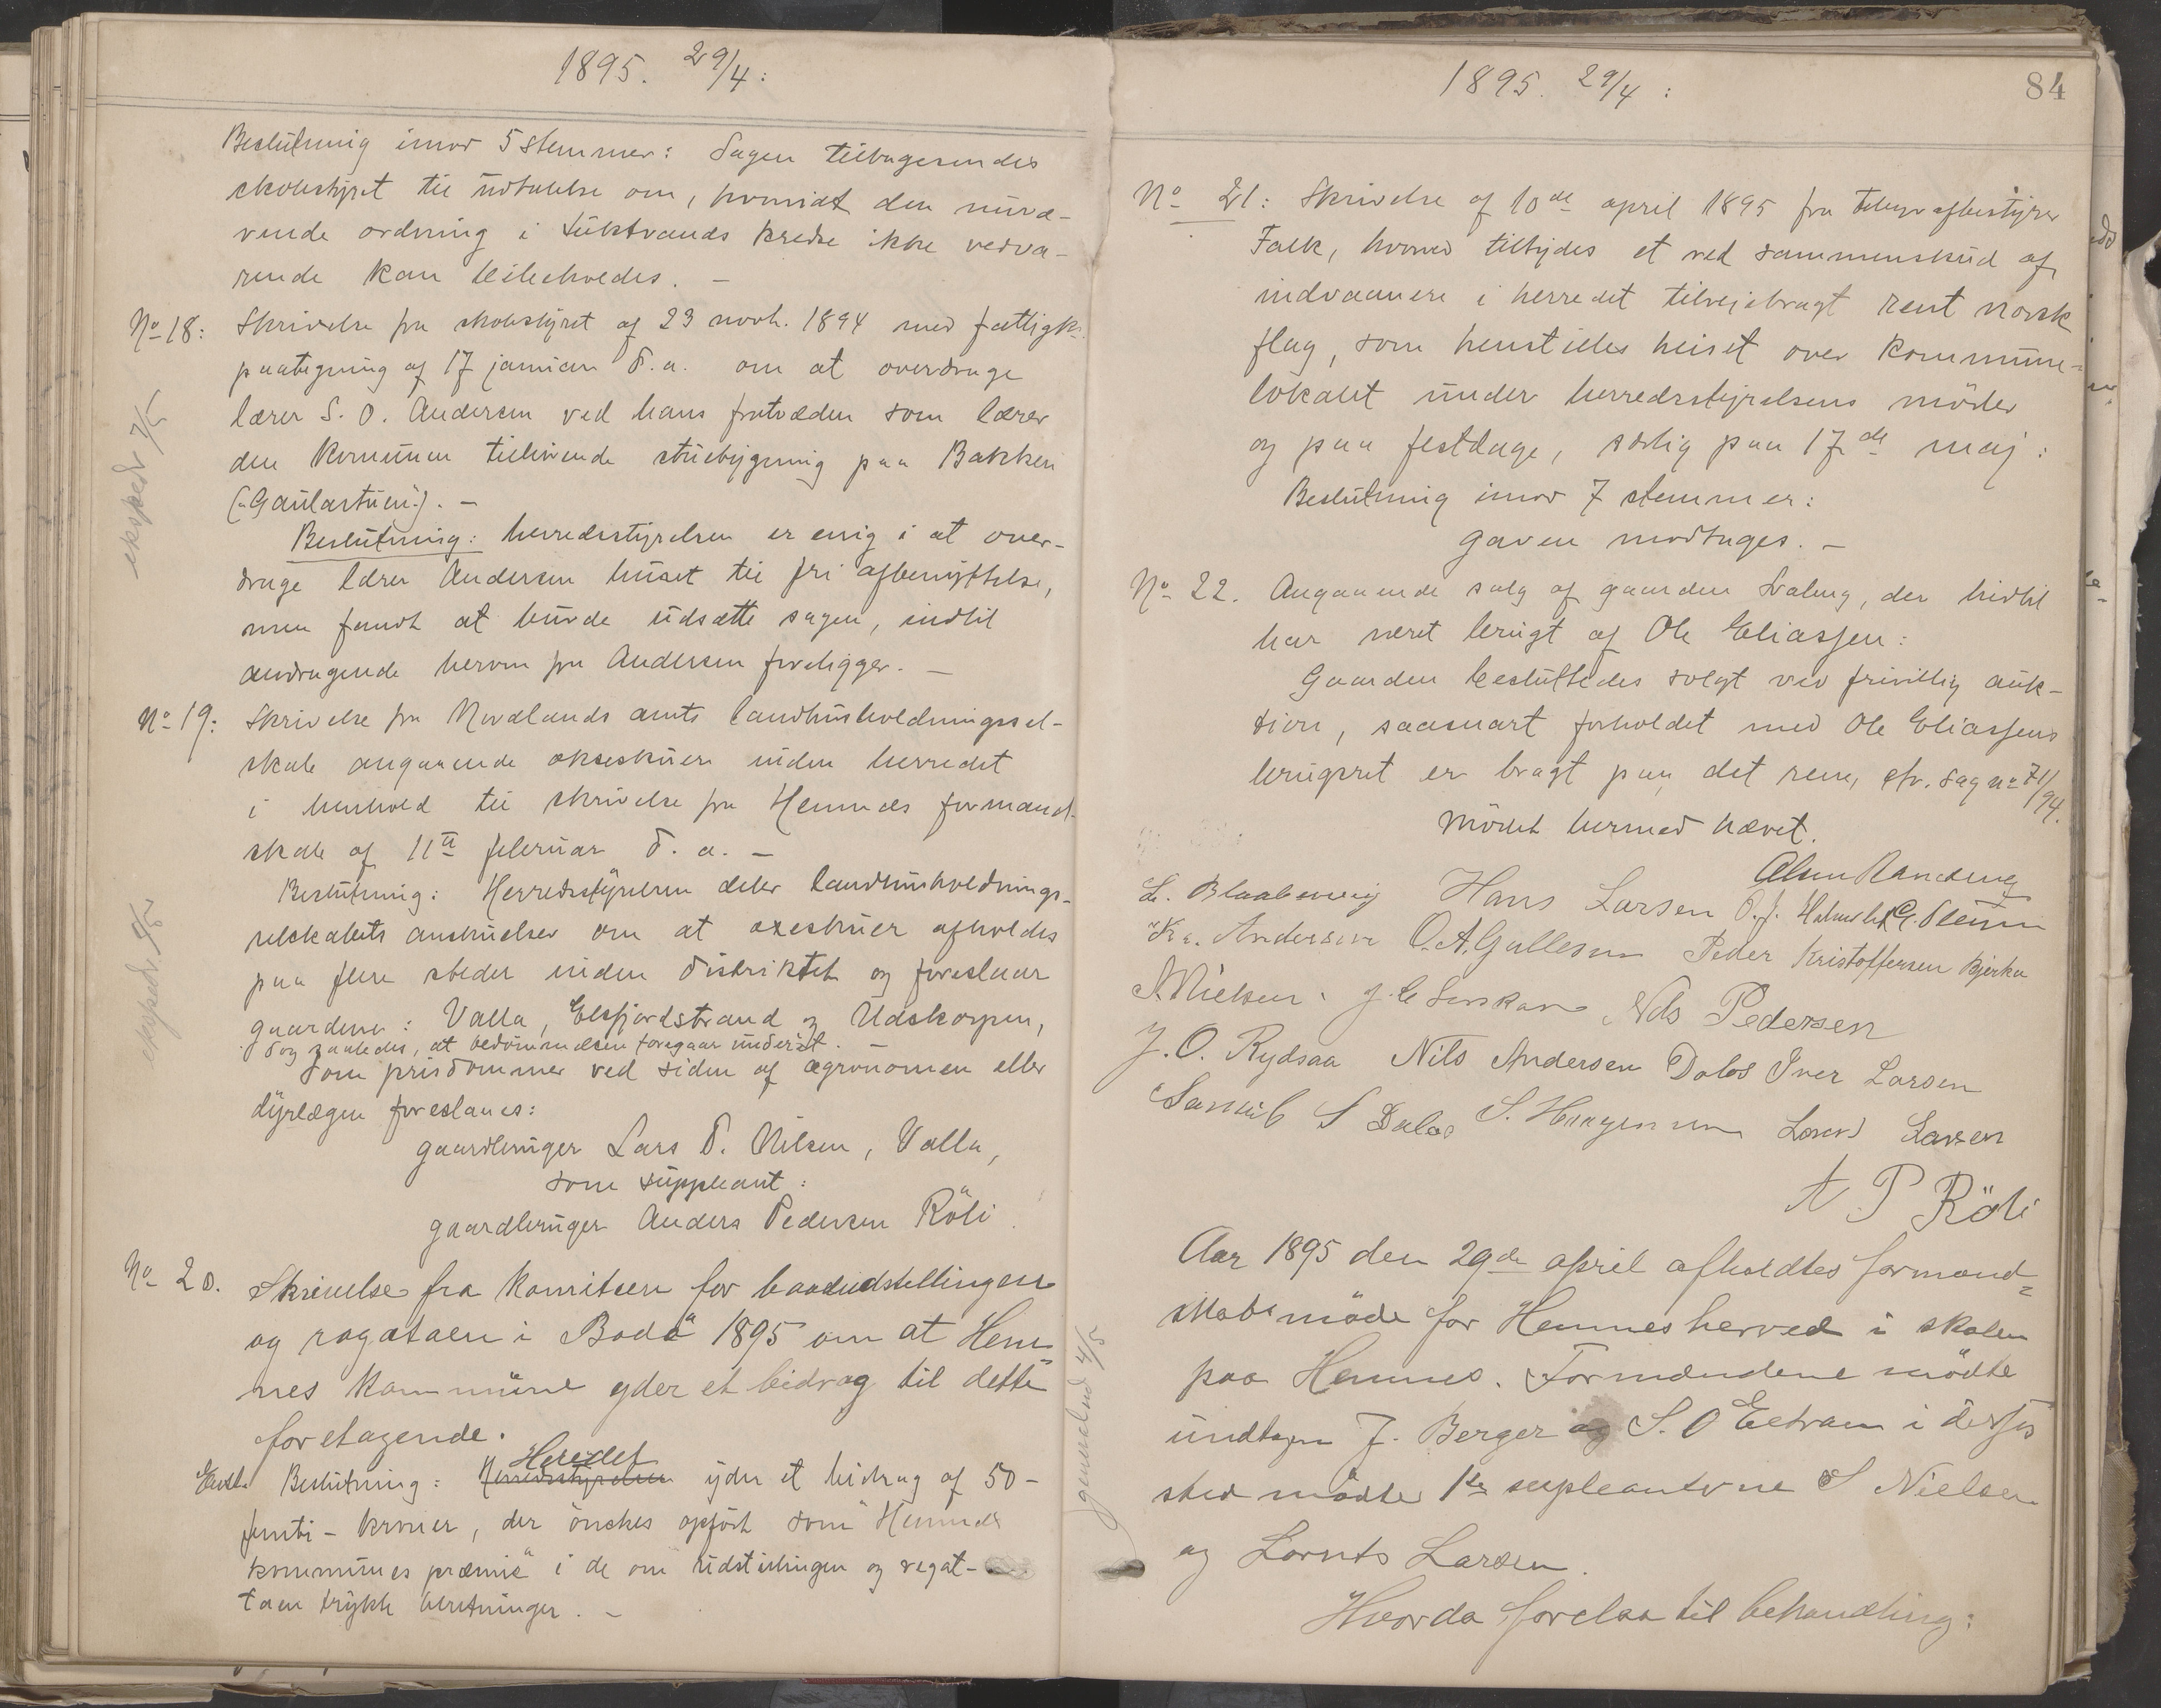 1895. 29/4:
Beslutning imod 5 stemmer: Sagen tilbagesendes
skolestyret til udtalelse om, hvorvidt den nuvæ-
rende ordning i Luktvands kreds ikke vedva-
rende kan bibeholdes. –
No 18: Skrivelse fra skolestyret af 23 novb. 1894 med fattigk.
paategning af 17 januar d.a. om at overdrage
lærer S. O. Andersen ved hans fratræden som lærer
den komunen tilhørende stuebygning paa Bakken
("Gaulastuen"). –
Beslutning: herredsstyrelsen er enig i at over-
drage lærer Andersen huset til fri afbenyttelse,
men fandt at burde udsætte sagen, indtil
andragende herom fra Andersen foreligger. –
No 19: Skrivelse fra Nordlands amts landhusholdningssel-
skab angaaende okseskuer inden herredet
i henhold til skrivelse fra Hemnes formand-
skab af 11te februar d. a. –
Beslutning: Herredsstyrelsen deler landhusholdnings-
selskabets anskuelser om at oxeskuer afholdes
paa flere steder inden distriktet og foreslaar
gaardene: Valla, Elsfjordstrand og Udskarpen,
dog saaledes, at bedømmelsen foregaar underet. –
Som prisdommer ved siden af agronomen eller
dyrlægen foreslaaes:
gaardbruger Lars P. Nilsen, Valla,
som suppleant:
gaardbruger Anders Pedersen Röli.
No 20. Skrivelse fra komiteen for baadudstillingen
og ragataen i Bodö 1895 om at Hem
nes kommune yder et bidrag til dette
foretagende.
Heredet
Enst. Beslutning: Herredsstyrelsen yder et bidrag af 50 –
femti – kroner, der önskes opfört som "Hemnes
kommunes præmie" i de om udstillingen og regat-
taen trykte beretninger. –
eksped. 7/5
eksped. 9/5
1895. 29/4:
84
No 21: Skrivelse af 10de april 1895 fra telegrafbestyrer
Falk, hvorved tilbydes et ved sammenskud af
indvaanere i herredet tilvejebragt rent norsk
flag, som henstilles heiset over kommune-
lokalet under herredsstyrelsens möder
og paa festdage, særlig paa 17de maj:
Beslutning imod 7 stemmer:
gaven modtages. –
No 22. Angaaende salg af gaarden Svaleng, der hidtil
har været brugt af Ole Eliassen:
Gaarden besluttedes solgt ved frivillig auk-
tion, saasnart forholdet med Ole Eliassens
brugsret er bragt paa det rene, cfr. sag no 71/94.
Mödet hermed hævet.
L. Blaabæreng Hans Larsen
Kr. Andersen O.A. Gullesen Peder Kristoffersen Bjerka
S. Nielsen. Nils Pedersen
J. O. Rydsaa Nils Andersen Dalos Iver Larsen
Samuel S Dalos Lornts Larsen
A P Röli
Aar 1895 den 29de april afholdtes formand-
skabsmöde for Hemnes herred i skolen
paa Hemnes. Formændene mödte
undtagen J. Berger og S. O Elstran i disses
sted mödte 1ste supleanterne S Nielsen
og Lornts Larsen.
Hvorda forelaa til behandling:
4/5